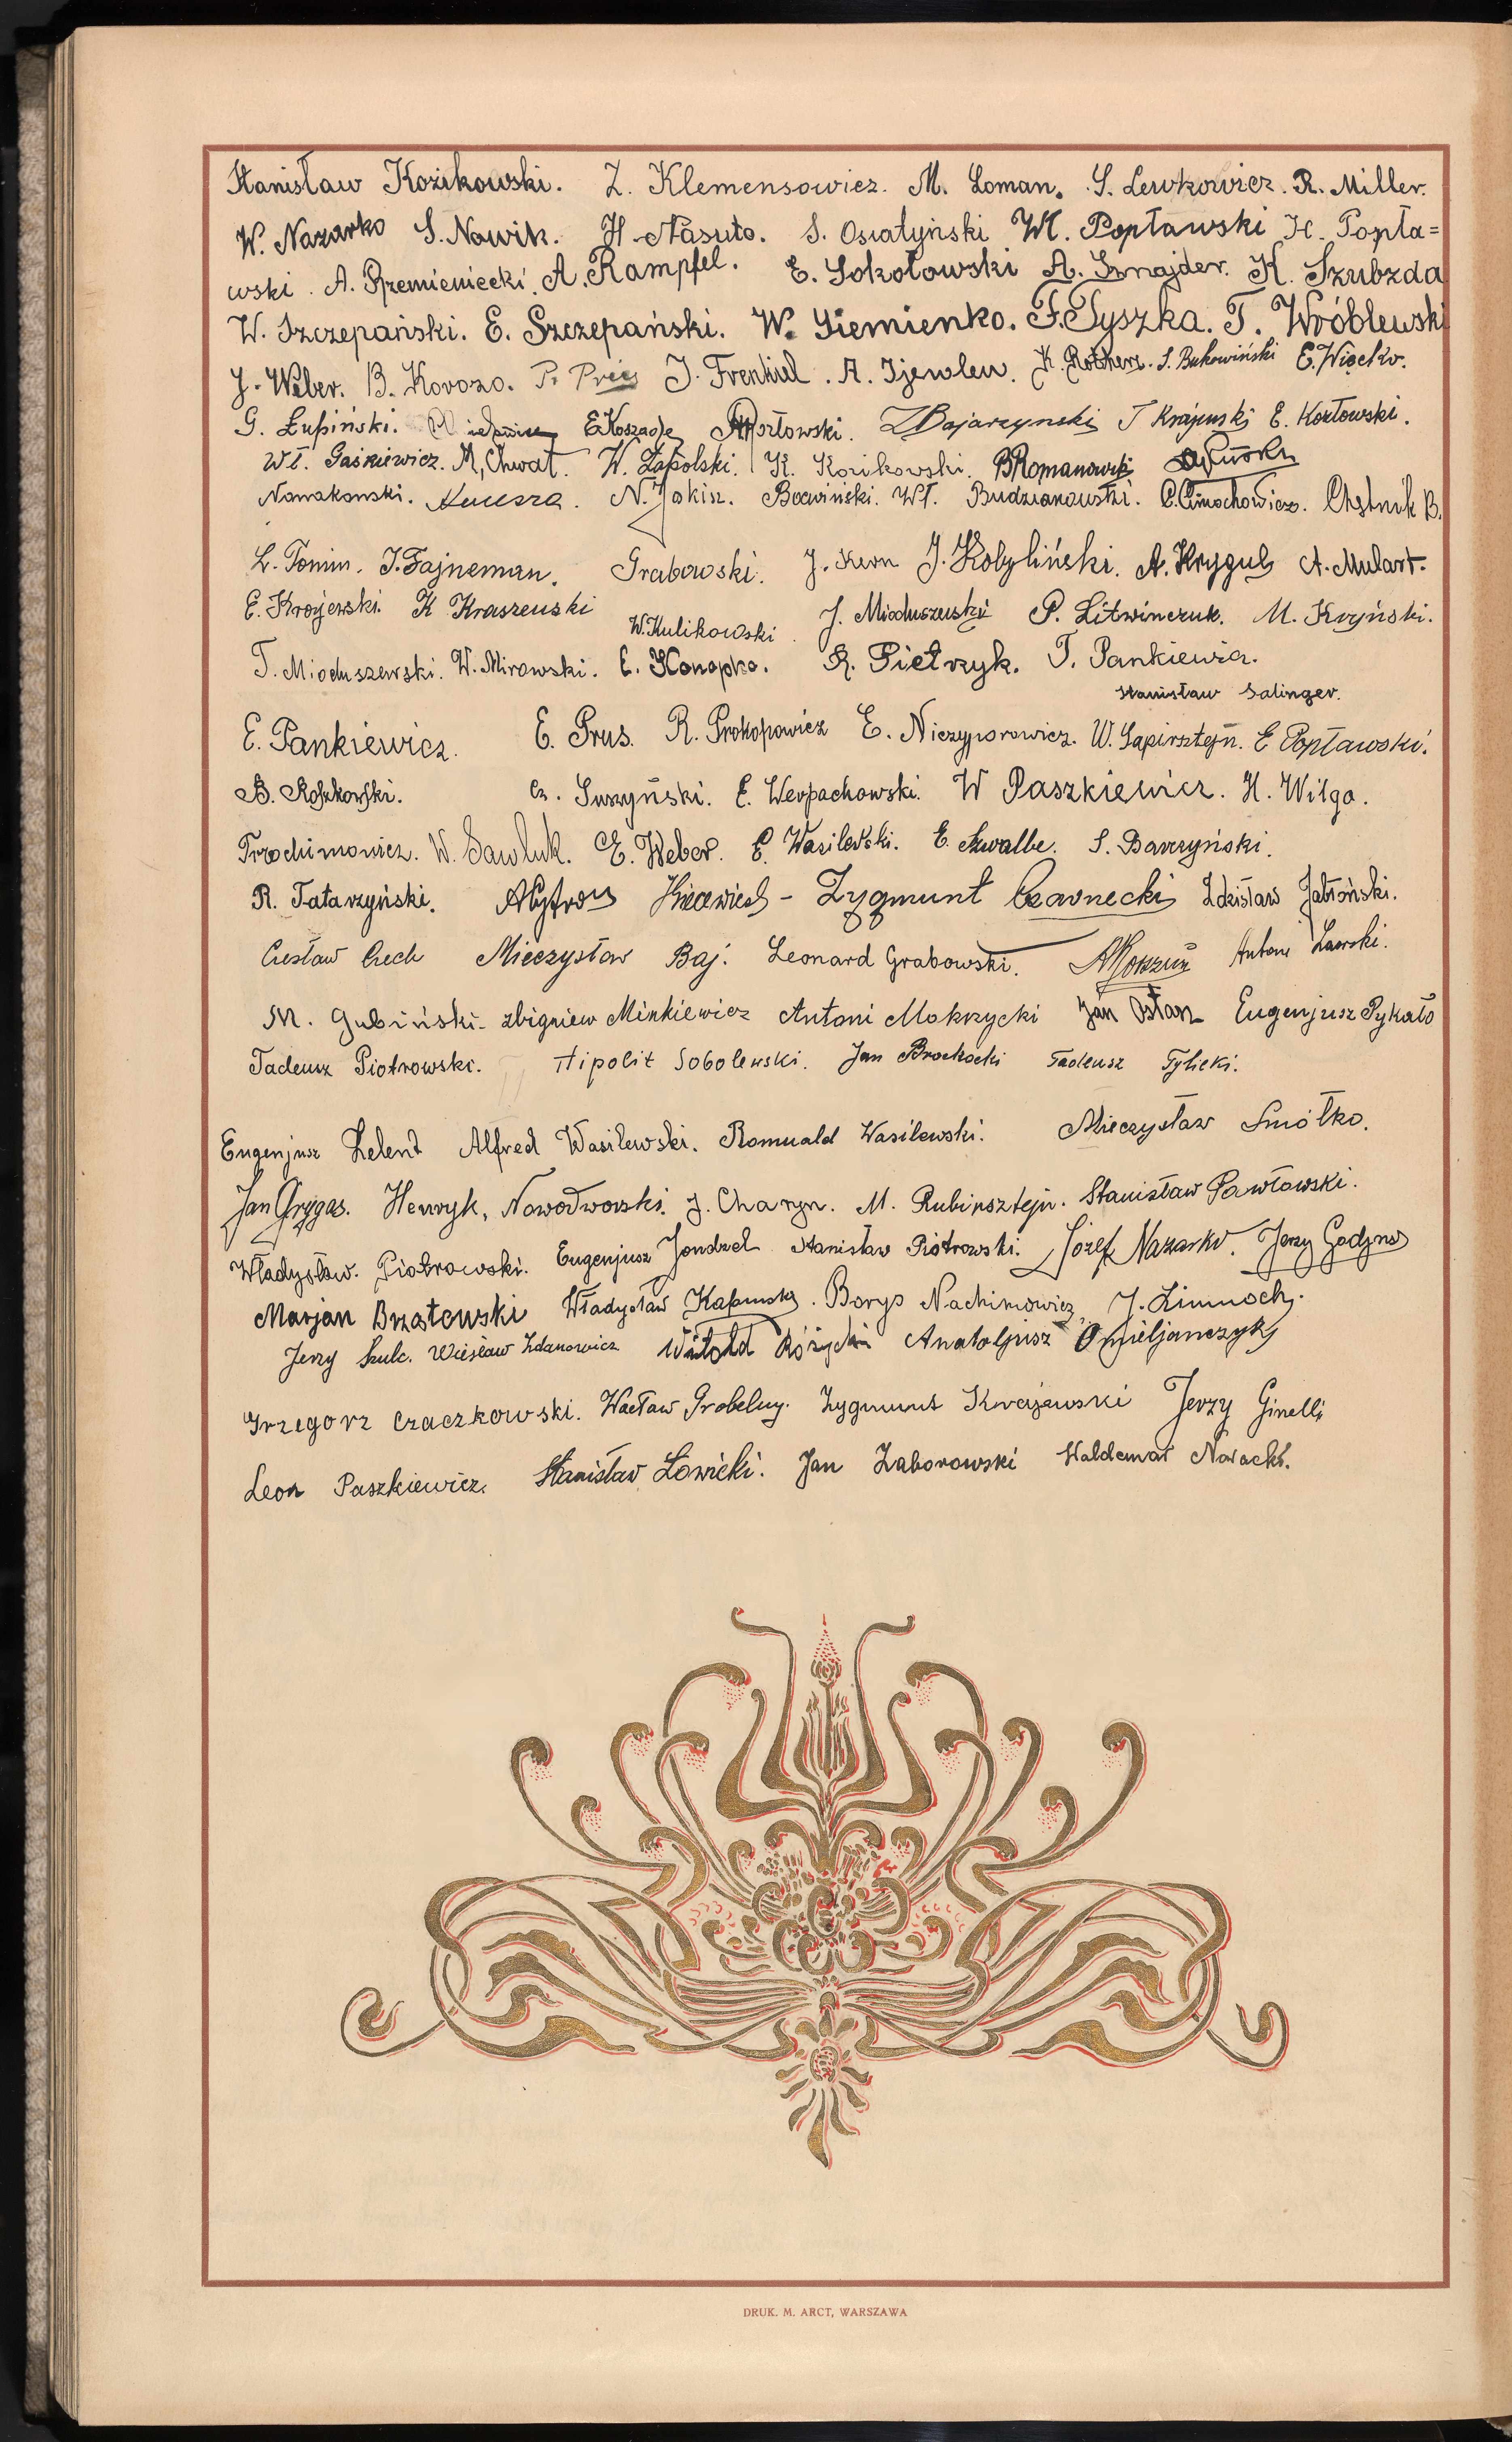 Stanisław Kozikowski. Z. Klemensowicz. M. Loman. S. Lewkowicz. R. Miller.
W. Nazarko S. Nowik. H. Nasuto. S. Osiatyński Wł. Popławski H. Popła=
wski. A. Przemieniecki. A. Rampfel. E. Sokołowski A. Sznajder. K. Szubzda
W. Szczepański. E. Szczepański. W. Siemienko. F. Tyszka. T. Wróblewski
J. Weber. B. Korozo. P. Preis J. Frenkiel. A. K. S. Bukowiński E. Więcko.
G. Łupiński. E Koszade Kozłowski. Z Bajarzynski J Krajewski E. Kozłowski.
Wł. Gaśkiewicz. M, Chwat. W. Zapolski. K. Kozikowski. B Romanowski
Nowakowski. N. Jakin. Wł. Budzianowski. C. Cimochowicz. Chętnik B.
L. Fomin. J. Fajneman. Grabowski. J. Kern J. Kobyliński. A. Kryguls A. Mulart.
E. Krojewski. K Kraszewski W. Kulikowski. J. Mioduszewski P. Litwinczuk. M. Krzyński.
T. Mioduszewski. W. Mirowski. E. Konopko. R. Pietrzyk. T. Pankiewicz.
Stanisław Salinger.
E. Pankiewicz. E. Prus. R. Prokopowicz E. Niczyporowicz. W. Sapirsztejn. E Popławski.
B. Roszkowski. Cz. Suszyński. E. Werpachowski. W Paszkiewicz. H. Wilga.
Trochimowicz. W. Sawluk. E. Weber. E. Wasilewski. E. Szwalbe. S. Barszyński.
R. Tatarzyński. Zygmunt Czarnecki Zdzisław Jabłoński.
Czesław Czech Mieczysław Baj. Leonard Grabowski. Antoni
M. Gubiński. Zbigniew Minkiewicz Antoni Mokrzycki Jan Eugenjusz Pykało
Tadeusz Piotrowski. Hipolit Sobolewski. Jan Brockocki Tadeusz Tylicki.
Eugenjusz Zelent Alfred Wasilewski. Romuald Wasilewski. Mieczysław Smółko.
Jan Grygas. Henryk, Nowodworski. J. Charyn. M. Rubinsztejn. Stanisław Pawłowski.
Władysław. Piotrowski. Eugenjusz Jondzel Stanisław Piotrowski. Józef Nazarko. Jerzy Godyna
Marjan Brzostowski Władysław Borys Nachimowicz, J. Zimnoch.
Jerzy Szulc. Wiesław Zdanowicz Witold Różycki Anatoljusz Omieljanczyk
Grzegorz Czaczkowski. Wacław Grobelny. Zygmunt Krajewski Jerzy Ginelli
Leon Paszkiewicz. Stanisław Łowicki. Jan Zaborowski Waldemar
DRUK. M. ARCT, WARSZAWA